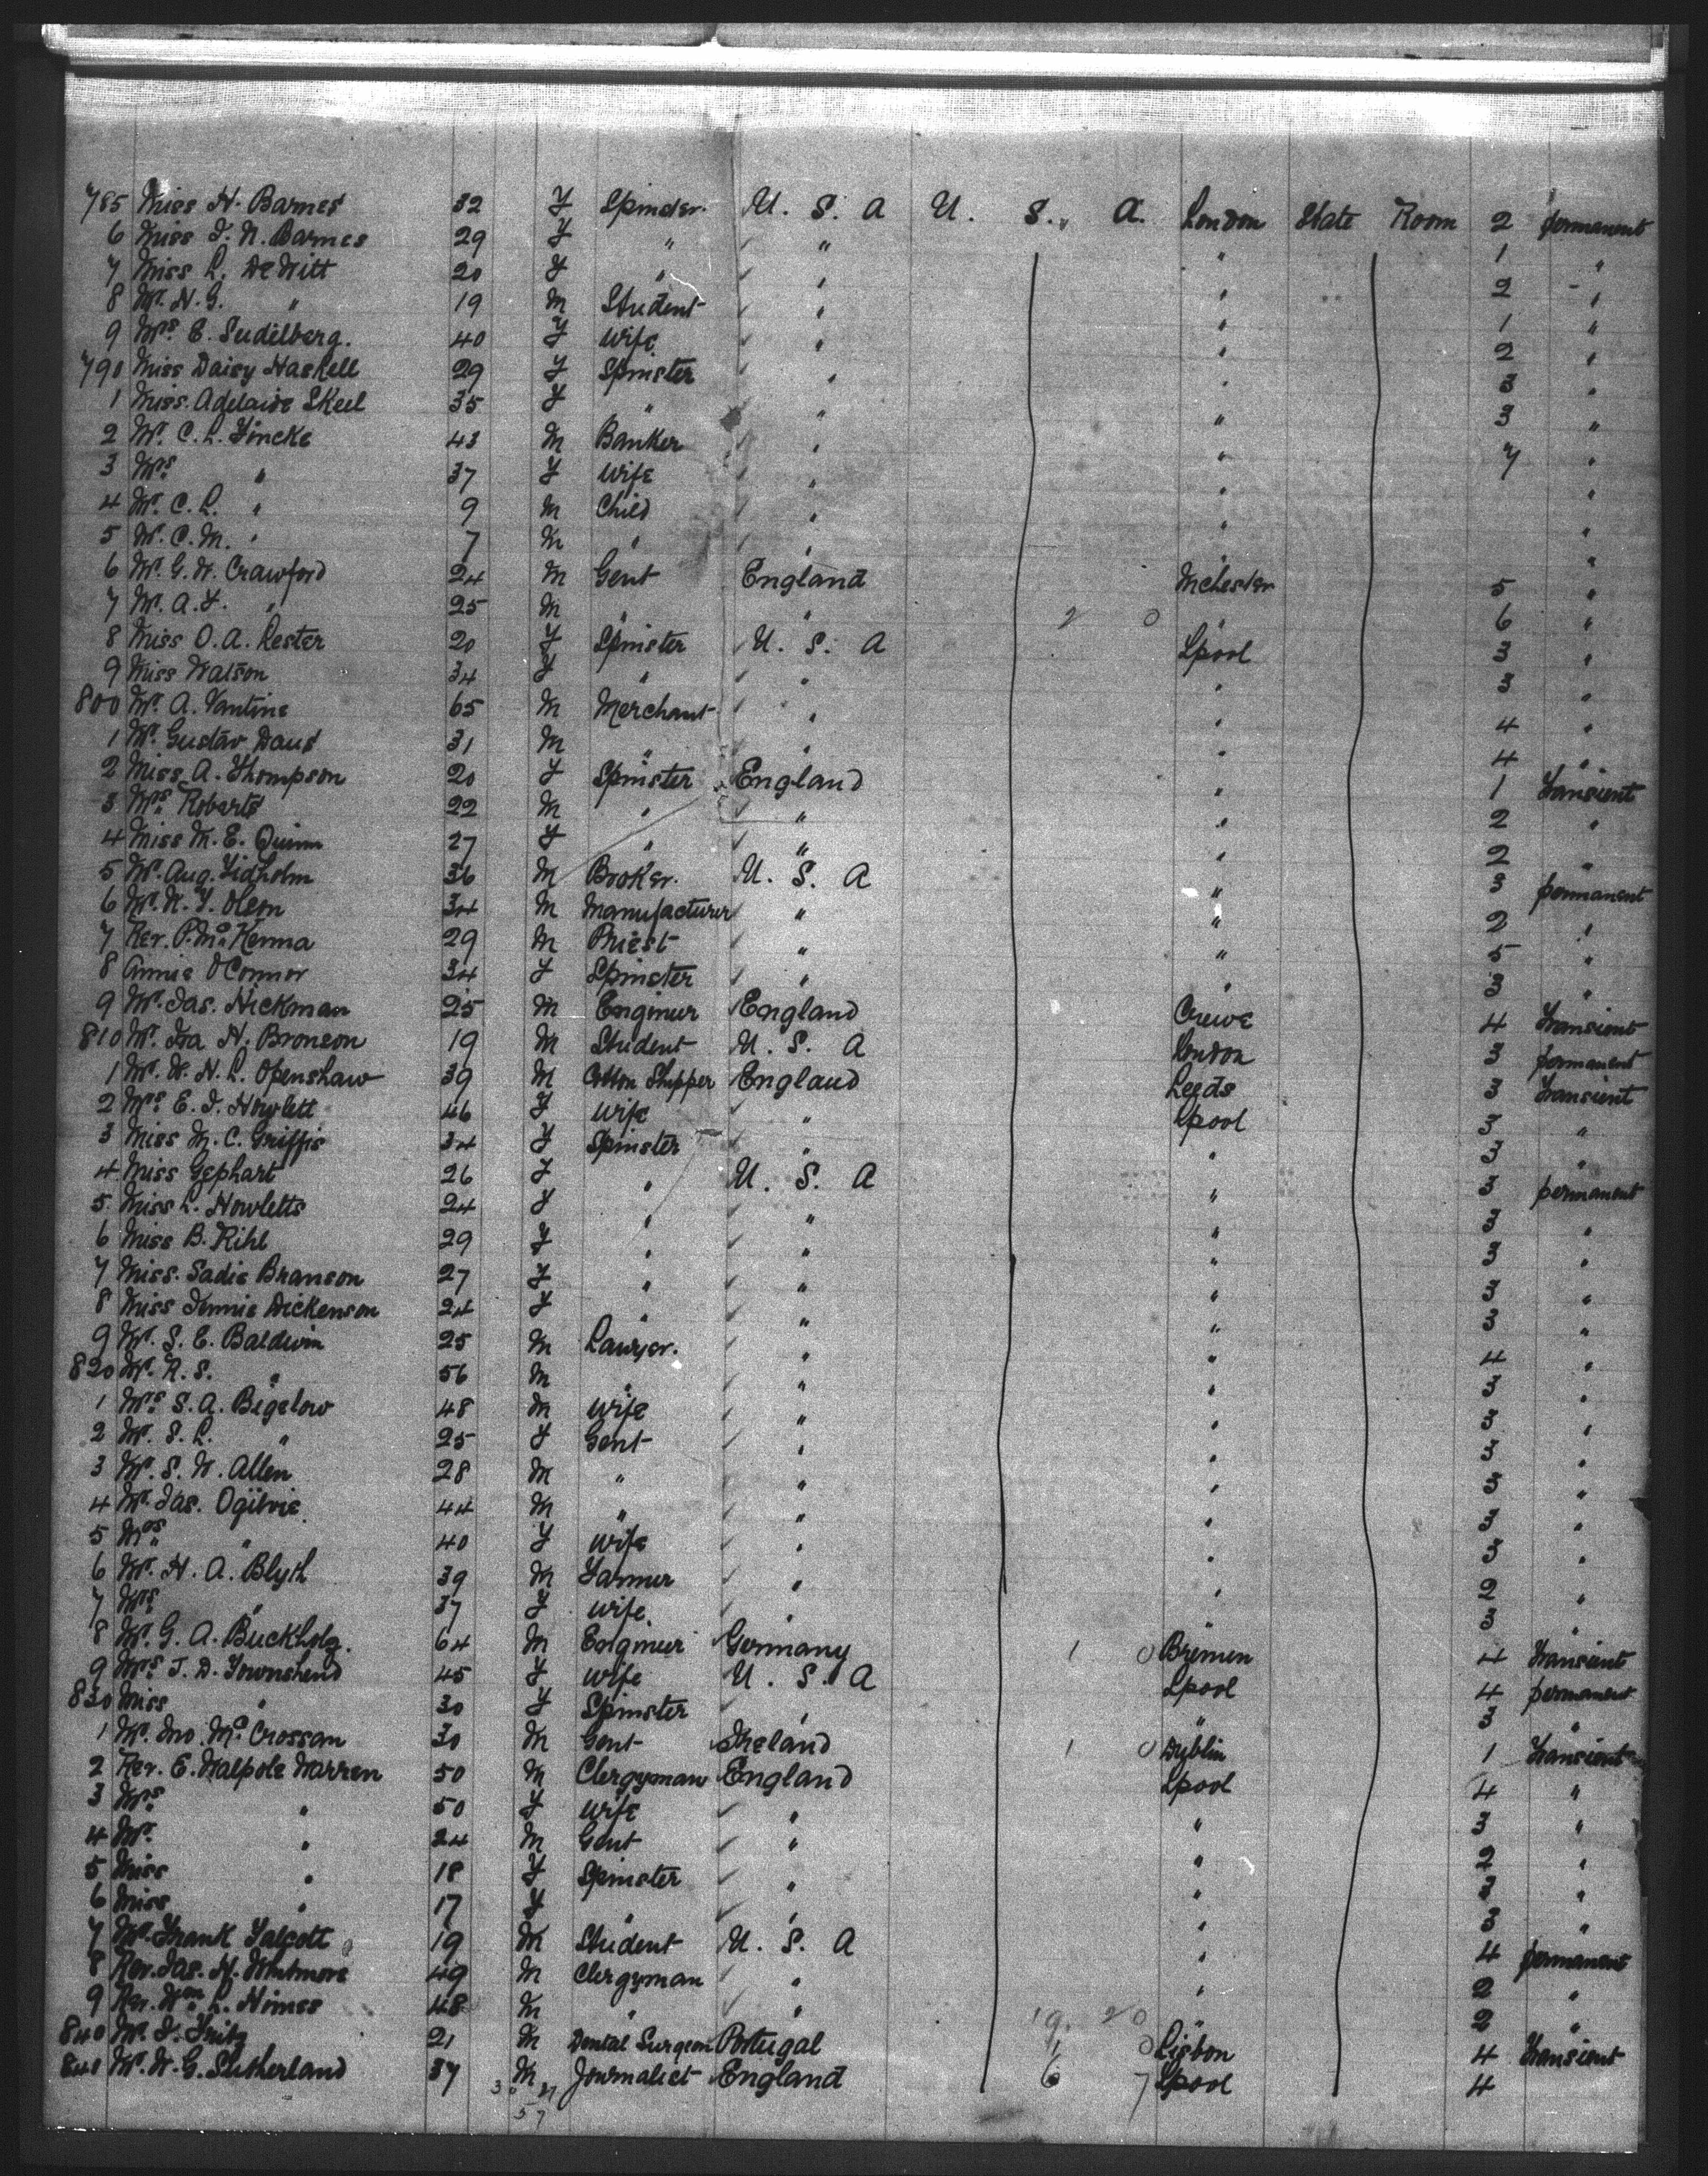 785 Miss H. Barnes 32 F Spinster. U. S. A U. S. A. London State Room 2 permanent
6 Miss J. N. Barnes 29 F " " " 1 "
7 Miss L. DeWitt 20 F " " " 2 "
8 Mr. H. G. " 19 M Student " " 1 "
9 Mrs. E. Sudelberg. 40 F Wife " " 2 "
790 Miss Daisy Haskell 29 F Spinster " " 3 "
1 Miss. Adelaide Skeel 35 F " " " 3 "
2 Mr. C. L. Fincke 43 M Banker " " 7 "
3 Mrs. " 37 F Wife " " "
4 Mr. C. L. " 9 M Child " " "
5 Mr. C. M. " 7 M " " " "
6 Mr. G. W. Crawford 24 M Gent England Mchester 5 "
7 Mr. A. F. " 25 M " " 2 0 " 6 "
8 Miss O. A. Lester 20 F Spinster U. S. A Lpool 3 "
9 Miss Watson 34 F " " " 3 "
800 Mr. A. Vantine 65 M Merchant " " 4 "
1 Mr. Gustav Daus 31 M " " " 4 "
2 Miss A. Thompson 20 F Spinster England " 1 Transient
3 Mrs. Roberts 22 M " " " 2 "
4 Miss M. E. Quinn 27 F " " " 2 "
5 Mr. Aug. Lidholm 36 M Broker. U. S. A " 3 permanent
6 Mr. N. F. Olson 34 M Manufacturer " " 2 "
7 Rev. P. McKenna 29 M Priest " " 5 "
8 Annie O'Connor 34 F Spinster " " 3 "
9 Mr. Jas. Hickman 25 M Engineer England Crewe 4 Transient
810 Mr. Ira H. Bronson 19 M Student U. S. A London 3 permanent
1 Mr. W. H. L. Openshaw 39 M Cotton Shipper England Leeds 3 Transient
2 Mrs. E. J. Howlett 46 F Wife " Lpool 3 "
3 Miss M. C. Griffis 34 F Spinster " " 3 "
4 Miss Gephart 26 F " U. S. A " 3 permanent
5 Miss L. Howletts 24 F " " " 3 "
6 Miss B. Rihl 29 F " " " 3 "
7 Miss. Sadie Branson 27 F " " " 3 "
8 Miss Jennie Dickenson 24 F " " " 3 "
9 Mr. S. E. Baldwin 25 M Lawyer. " " 4 "
820 Mr. R. S. " 56 M " " " 3 "
1 Mrs. S. A. Bigelow 48 M Wife " " 3 "
2 Mr. S. L. " 25 F Gent " " 3 "
3 Mr. S. W. Allen 28 M " " " 3 "
4 Mr. Jas. Ogilvie. 44 M " " " 3 "
5 Mrs. " 40 F Wife " " 3 "
6 Mr. H. A. Blyth 39 M Farmer " " 2 "
7 Mrs. " 37 F Wife. " " 3 "
8 Mr. G. A. Buckholz. 64 M Engineer Germany 1 0 Bremen 4 Transient
9 Mrs. J. D. Townshend 45 F Wife U. S. A Lpool 4 permanent
830 Miss " 30 F Spinster " " 3 "
1 Mr. Jno. McCrossan 30 M Gent Ireland 1 0 Dublin 1 Transient
2 Rev. E. Walpole Warren 50 M Clergyman England Lpool 4 "
3 Mrs. " 50 F Wife " " 3 "
4 Mr. " 24 M Gent " " 2 "
5 Miss " 18 F Spinster " " 3 "
6 Miss " 17 F " " " 3 "
7 Mr. Frank Talcott 19 M Student U. S. A " 4 permanent
8 Rev. Jas. H. Whitmore 49 M Clergyman " " 2 "
9 Rev. Wm. L. Himes 48 M " " 19. 20 " 2 "
840 Mr. J. Fritz 21 M Dental Surgeon Portugal 1 0 Lisbon 4 Transient
841 Mr. W. G. Sutherland 37 M Journalist England 6 7 Lpool 4
57